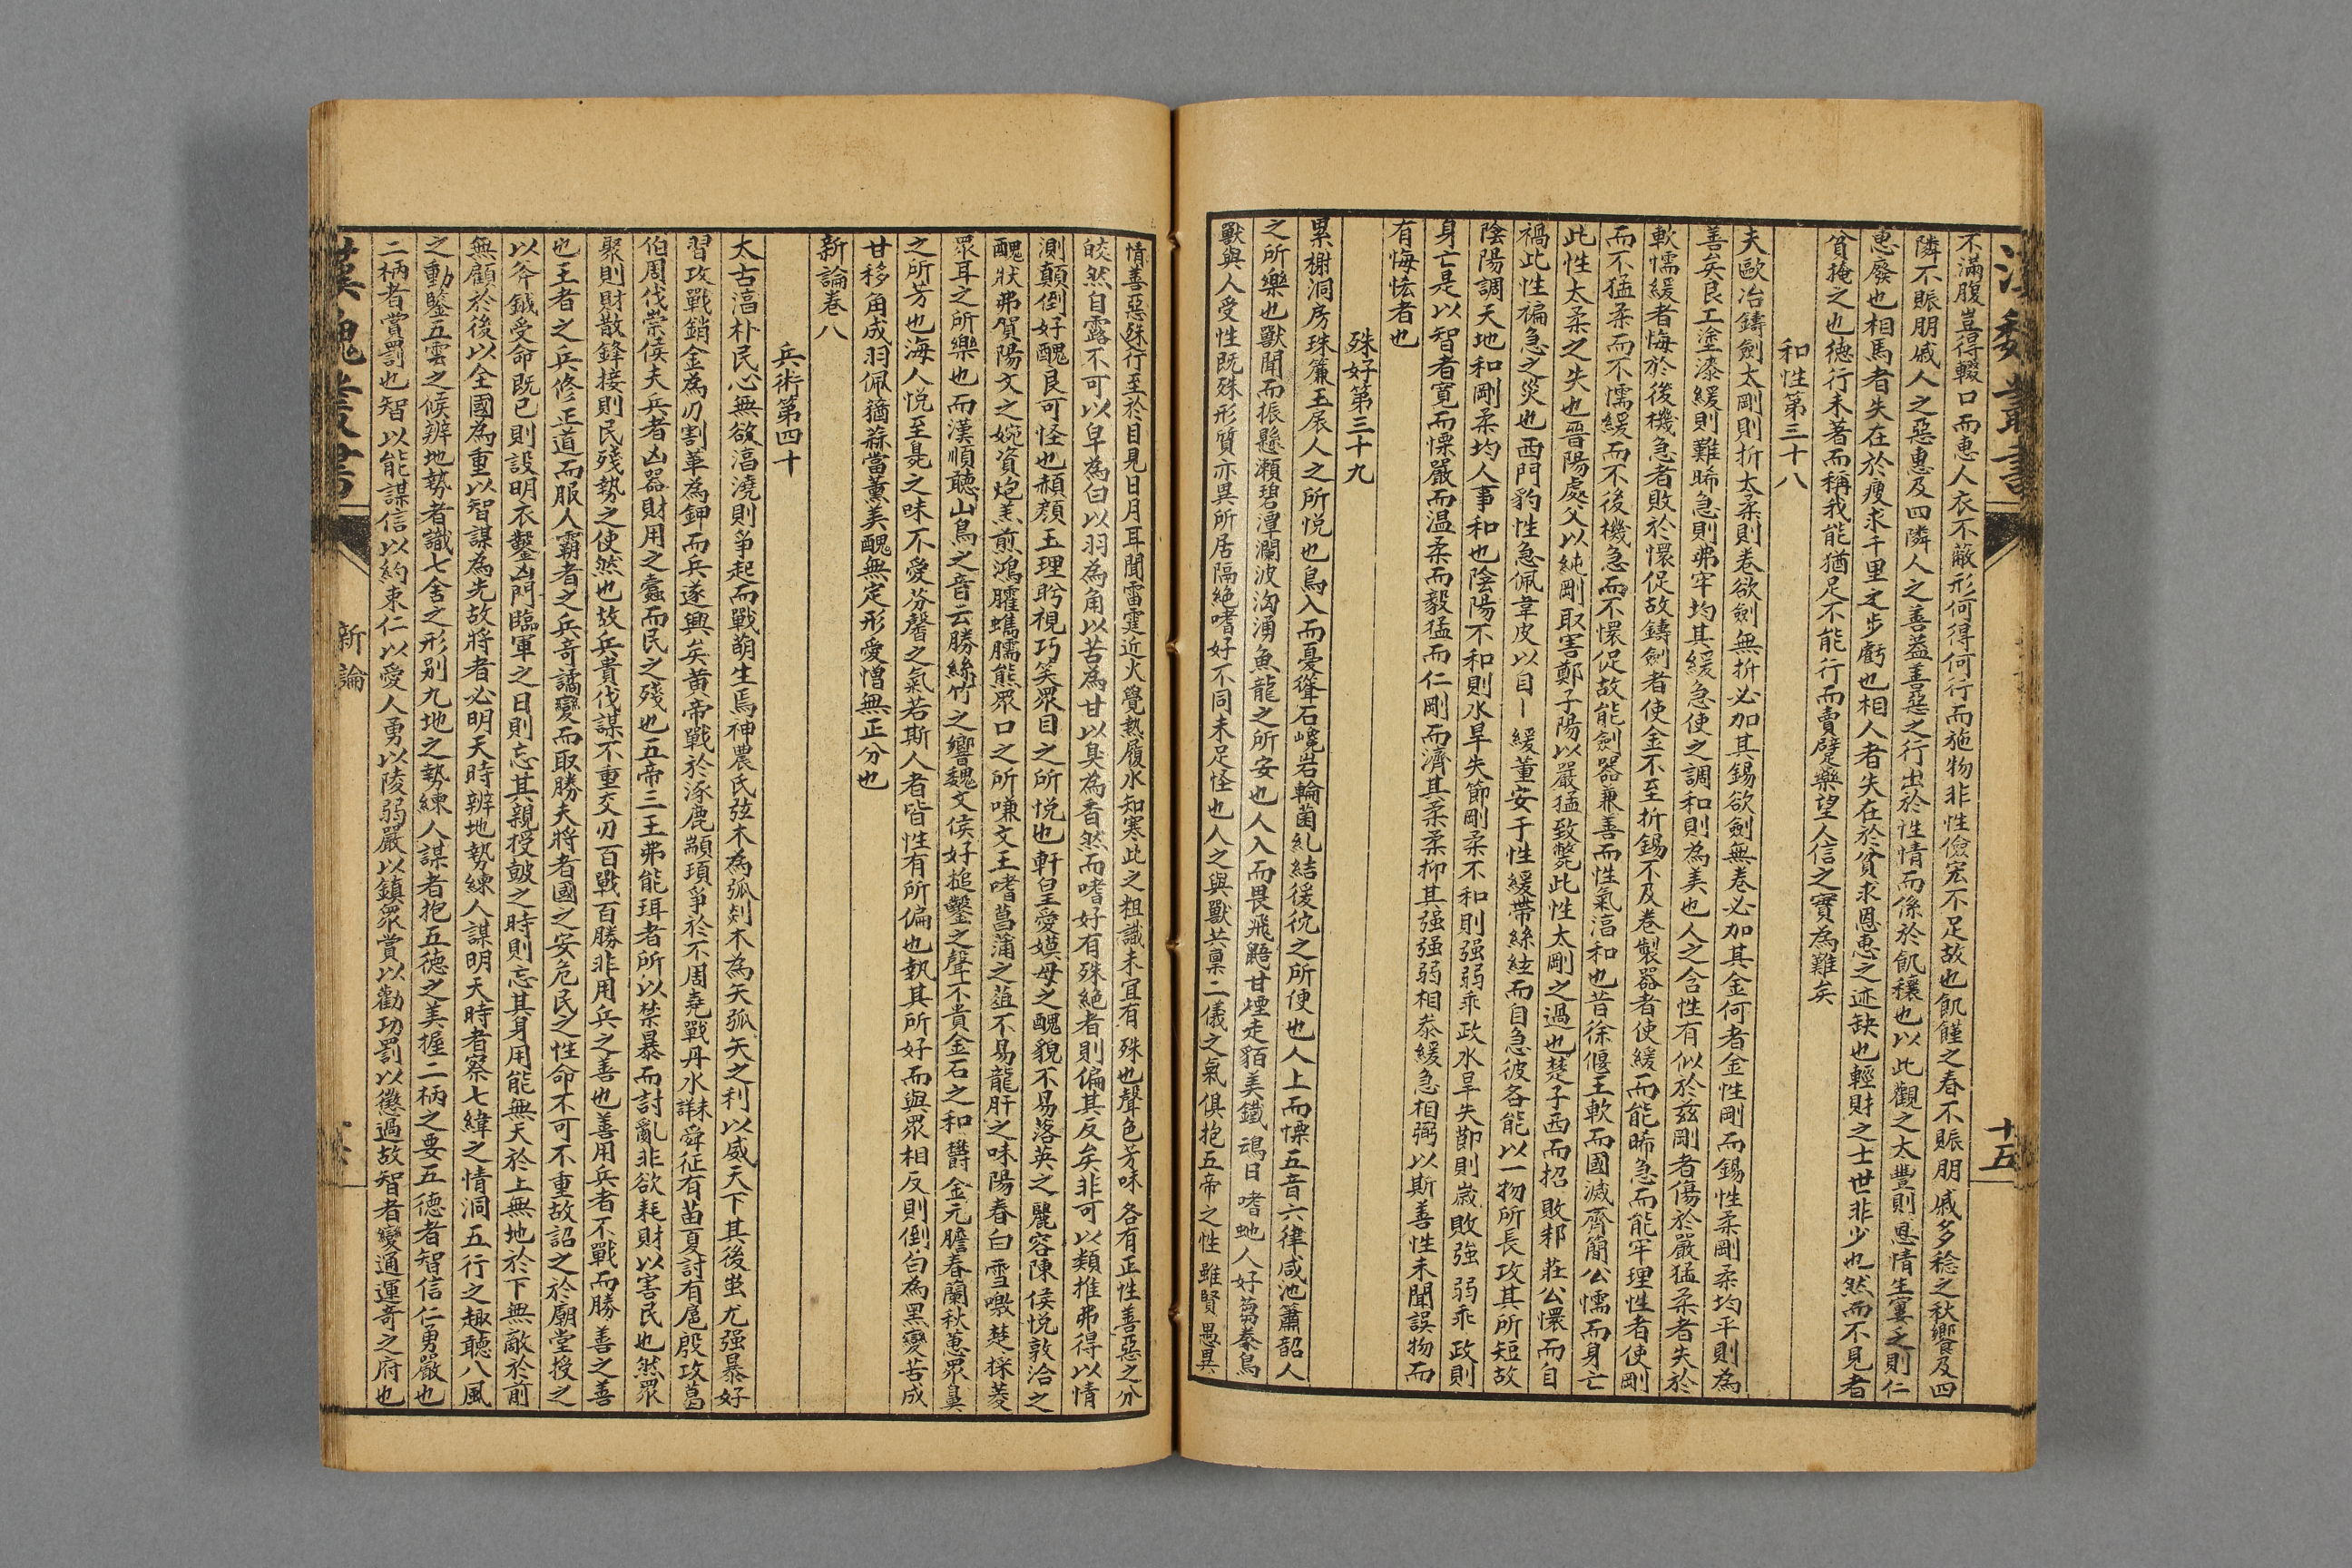 漢魏叢書
十五
不滿腹豈得輟口而惠人衣不蔽形何得何行而施物非性儉宏不足故也飢饉之春不賑朋戚多稔之秋饗及四
隣不賑朋戚人之惡惠及四隣人之善益善惡之行出於性情而係於飢穰也以此觀之太豐則恩情生窶乏則仁
惠廢也相馬者失在於瘦求千里之步虧也相人者失在於貧求恩惠之迹缺也輕財之士世非少也然而不見者
貧掩之也德行未著而稱我能猶足不能行而賣躄藥望人信之實為難矣
和性第三十八
夫歐冶鑄劍太剛則折太柔則卷欲劍無折必加其錫欲劍無卷必加其金何者金性剛而錫性柔剛柔均平則為
善矣良工塗漆緩則難晞急則弗牢均其緩急使之調和則為美也人之含性有似於茲剛者傷於嚴猛柔者失於
軟懦緩者悔於後機急者敗於懷促故鑄劍者使金不至折錫不及卷製器者使緩而能晞急而能牢理性者使剛
而不猛柔而不懦緩而不後機急而不懷促故能劍器兼善而性氣淊和也昔徐偃王軟而國滅齊簡公懦而身亡
此性太柔之失也晋陽處父以純剛取害鄭子陽以嚴猛致斃此性太剛之過也楚子西而招敗邾莊公懷而自
禍此性褊急之災也西門豹性急佩韋皮以自丨緩董安于性緩帶絲絃而自急彼各能以一物所長攻其所短故
陰陽調天地和剛柔均人事和也陰陽不和則水旱失節剛柔不和則强弱乖政水旱失節則歲敗強弱乖政則
身亡是以智者寬而慄嚴而溫柔而毅猛而仁剛而濟其柔柔抑其强强弱相叅緩急相弼以斯善性未聞誤物而
有悔恡者也
殊好第三十九
累榭洞房珠簾玉扆人之所悅也鳥入而憂聳石巉岩輪菌糺結猨狖之所便也人上而慄五音六律咸池簫韶人
之所樂也獸聞而振懸瀨碧潭瀾波洶湧魚龍之所安也人入而畏飛鼯甘煙走貊美鐵鴆日嗜虵人好蒭豢鳥
獸與人受性既殊形質亦異所居隔絕嗜好不同未足怪也人之與獸共稟二儀之氣俱抱五帝之性雖賢愚異
情善惡殊行至於目見日月耳聞雷霆近火覺熱履氷知寒此之粗識未宜有殊也聲色芳味各有正性善惡之分
皎然自露不可以皁為白以羽為角以苦為甘以臭為香然而嗜好有殊絕者則偏其反矣非可以類推弗得以情
測顛倒好醜良可怪也赬顏玉理眄視巧笑眾目之所悅也軒皇愛嫫母之醜貌不易落英之麗容陳侯悅敦洽之
醜狀弗貿陽文之婉姿炮羔煎鴻臛蠵臑熊眾口之所嗛文王嗜菖蒲之葅不易龍肝之味陽春白雪噭楚採菱
眾耳之所樂也而漢順聽山鳥之音云勝絲竹之響魏文侯好搥鑿之聲不貴金石之和欝金元膽春蘭秋蕙眾鼻
之所芳也海人悅至臭之味不愛芬馨之氣若斯人者皆性有所偏也執其所好而與眾相反則倒白為黑變苦成
甘移角成羽佩蕕蒜當薰美醜無定形愛憎無正分也
新論卷八
兵術第四十
太古淊朴民心無欲淊澆則爭起而戰萌生焉神農氏弦木為弧剡木為矢弧矢之利以威天下其後蚩尤强暴好
習攻戰銷金為刃割革為鉀而兵遂興矣黃帝戰於涿鹿顓頊爭於不周堯戰丹水未詳舜征有苗夏討有扈殷攻葛
伯周伐崇侯夫兵者凶器財用之蠹而民之殘也五帝三王弗能珥者所以禁暴而討亂非欲耗財以害民也然眾
聚則財散鋒接則民殘勢之使然也故兵貴伐謀不重交刃百戰百勝非用兵之善也善用兵者不戰而勝善之善
也王者之兵修正道而服人霸者之兵奇譎變而取勝夫將者國之安危民之性命不可不重故詔之於廟堂授之
以斧鉞受命既已則設明衣鑿凶門臨軍之日則忘其親授皷之時則忘其身用能無天於上無地於下無敵於前
無顧於後以全國為重以智謀為先故將者必明天時辨地勢練人謀明天時者察七緯之情洞五行之趣聽八風
之動鑒五雲之候辨地勢者識七舍之形别九地之勢練人謀者抱五德之美握二柄之要五德者智信仁勇嚴也
二柄者賞罰也智以能謀信以約束仁以愛人勇以陵弱嚴以鎮眾賞以勸功罰以懲過故智者變通運奇之府也
漢魏叢書
新論